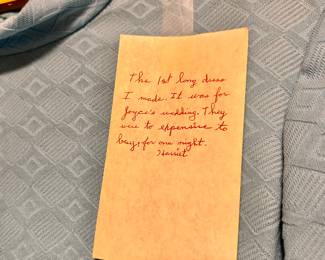 The 1st long dress
I made. It was for
Joyce's wedding. They
were to expensive to
buy, for one night.
Harriet